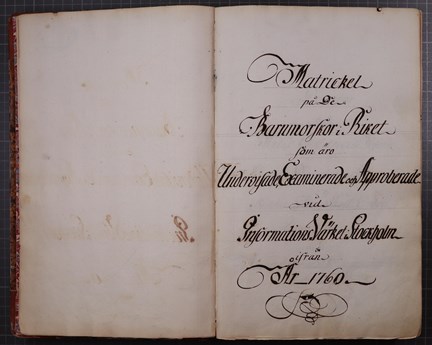 Matrickel
på De
Barnmorskor i Riket
som äro
Undervisade, Examinerade och Approberade
vid
Informations Värket i Stockholm
ifrån
År 1760